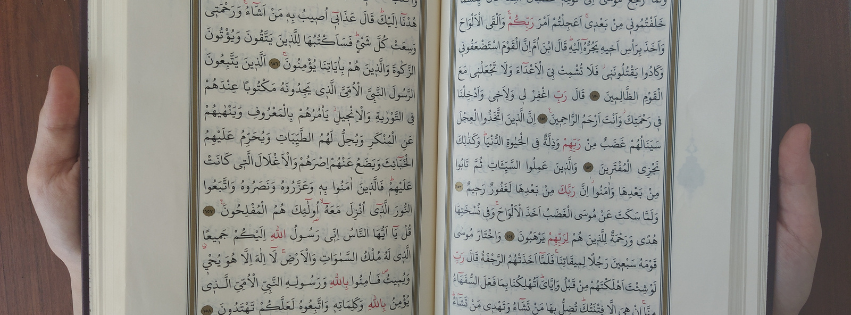 خَلَفْتُمُونِى مِنْ بَعْدِىۚ اَعَجِلْتُمْ اَمْرَ رَبِّكُمْۚ وَاَلْقَى الْاَلْوَاحَ
وَاَخَذَ بِرَأْسِ اَخِيهِ يَجُرُّهُٓ اِلَيْهِۜ قَالَ ابْنَ اُمَّ اِنَّ الْقَوْمَ اسْتَضْعَفُونِى
وَكَادُوا يَقْتُلُونَنِىۘ فَلَا تُشْمِتْ بِىَ الْاَعْدَٓاءَ وَلَا تَجْعَلْنِى مَعَ
الْقَوْمِ الظَّالِمِينَ ﴿١٥٠﴾ قَالَ رَبِّ اغْفِرْ لِى وَلِاَخِى وَاَدْخِلْنَا
فِى رَحْمَتِكَۘ وَاَنْتَ اَرْحَمُ الرَّاحِمِينَ ﴿١٥١﴾ اِنَّ الَّذِينَ اتَّخَذُوا الْعِجْلَ
سَيَنَالُهُمْ غَضَبٌ مِنْ رَبِّهِمْ وَذِلَّةٌ فِى الْحَيٰوةِ الدُّنْيَاۜ وَكَذٰلِكَ
نَجْزِى الْمُفْتَرِينَ ﴿١٥٢﴾ وَالَّذِينَ عَمِلُوا السَّيِّـَٔاتِ ثُمَّ تَابُوا
مِنْ بَعْدِهَا وَاٰمَنُواۘ اِنَّ رَبَّكَ مِنْ بَعْدِهَا لَغَفُورٌ رَحِيمٌ ﴿١٥٣﴾
وَلَمَّا سَكَتَ عَنْ مُوسَى الْغَضَبُ اَخَذَ الْاَلْوَاحَۚ وَفِى نُسْخَتِهَا
هُدًى وَرَحْمَةٌ لِلَّذِينَ هُمْ لِرَبِّهِمْ يَرْهَبُونَ ﴿١٥٤﴾ وَاخْتَارَ مُوسٰى
قَوْمَهُ سَبْعِينَ رَجُلًا لِمِيقَاتِنَاۚ فَلَمَّٓا اَخَذَتْهُمُ الرَّجْفَةُ قَالَ رَبِّ
لَوْ شِئْتَ اَهْلَكْتَهُمْ مِنْ قَبْلُ وَاِيَّاىَۜ اَتُهْلِكُنَا بِمَا فَعَلَ السُّفَهَٓاءُ
مِنَّاۚ اِنْ هِىَ اِلَّا فِتْنَتُكَۜ تُضِلُّ بِهَا مَنْ تَشَٓاءُ وَتَهْدِى مَنْ تَشَٓاءُۜ
هُدْنَٓا اِلَيْكَۜ قَالَ عَذَابِٓى اُصِيبُ بِهِ مَنْ اَشَٓاءُۚ وَرَحْمَتِى
وَسِعَتْ كُلَّ شَىْءٍۜ فَسَاَكْتُبُهَا لِلَّذِينَ يَتَّقُونَ وَيُؤْتُونَ
الزَّكٰوةَ وَالَّذِينَ هُمْ بِاٰيَاتِنَا يُؤْمِنُونَۚ ﴿١٥٦﴾ اَلَّذِينَ يَتَّبِعُونَ
الرَّسُولَ النَّبِىَّ الْاُمِّىَّ الَّذِى يَجِدُونَهُ مَكْتُوبًا عِنْدَهُمْ
فِى التَّوْرٰيةِ وَالْاِنْجِيلِۘ يَأْمُرُهُمْ بِالْمَعْرُوفِ وَيَنْهٰيهُمْ
عَنِ الْمُنْكَرِ وَيُحِلُّ لَهُمُ الطَّيِّبَاتِ وَيُحَرِّمُ عَلَيْهِمُ
الْخَبَٓائِثَ وَيَضَعُ عَنْهُمْ اِصْرَهُمْ وَالْاَغْلَالَ الَّتِى كَانَتْ
عَلَيْهِمْۜ فَالَّذِينَ اٰمَنُوا بِهِ وَعَزَّرُوهُ وَنَصَرُوهُ وَاتَّبَعُوا
النُّورَ الَّذِٓى اُنْزِلَ مَعَهُٓۙ اُو۬لٰٓئِكَ هُمُ الْمُفْلِحُونَ۟ ﴿١٥٧﴾
قُلْ يَٓا اَيُّهَا النَّاسُ اِنِّى رَسُولُ اللّٰهِ اِلَيْكُمْ جَمِيعًاۨ
الَّذِى لَهُ مُلْكُ السَّمٰوَاتِ وَالْاَرْضِۚ لَٓا اِلٰهَ اِلَّا هُوَ يُحْيِى
وَيُمِيتُۖ فَاٰمِنُوا بِاللّٰهِ وَرَسُولِهِ النَّبِىِّ الْاُمِّىِّ الَّذِى
يُؤْمِنُ بِاللّٰهِ وَكَلِمَاتِهِ وَاتَّبِعُوهُ لَعَلَّكُمْ تَهْتَدُونَ ﴿١٥٨﴾